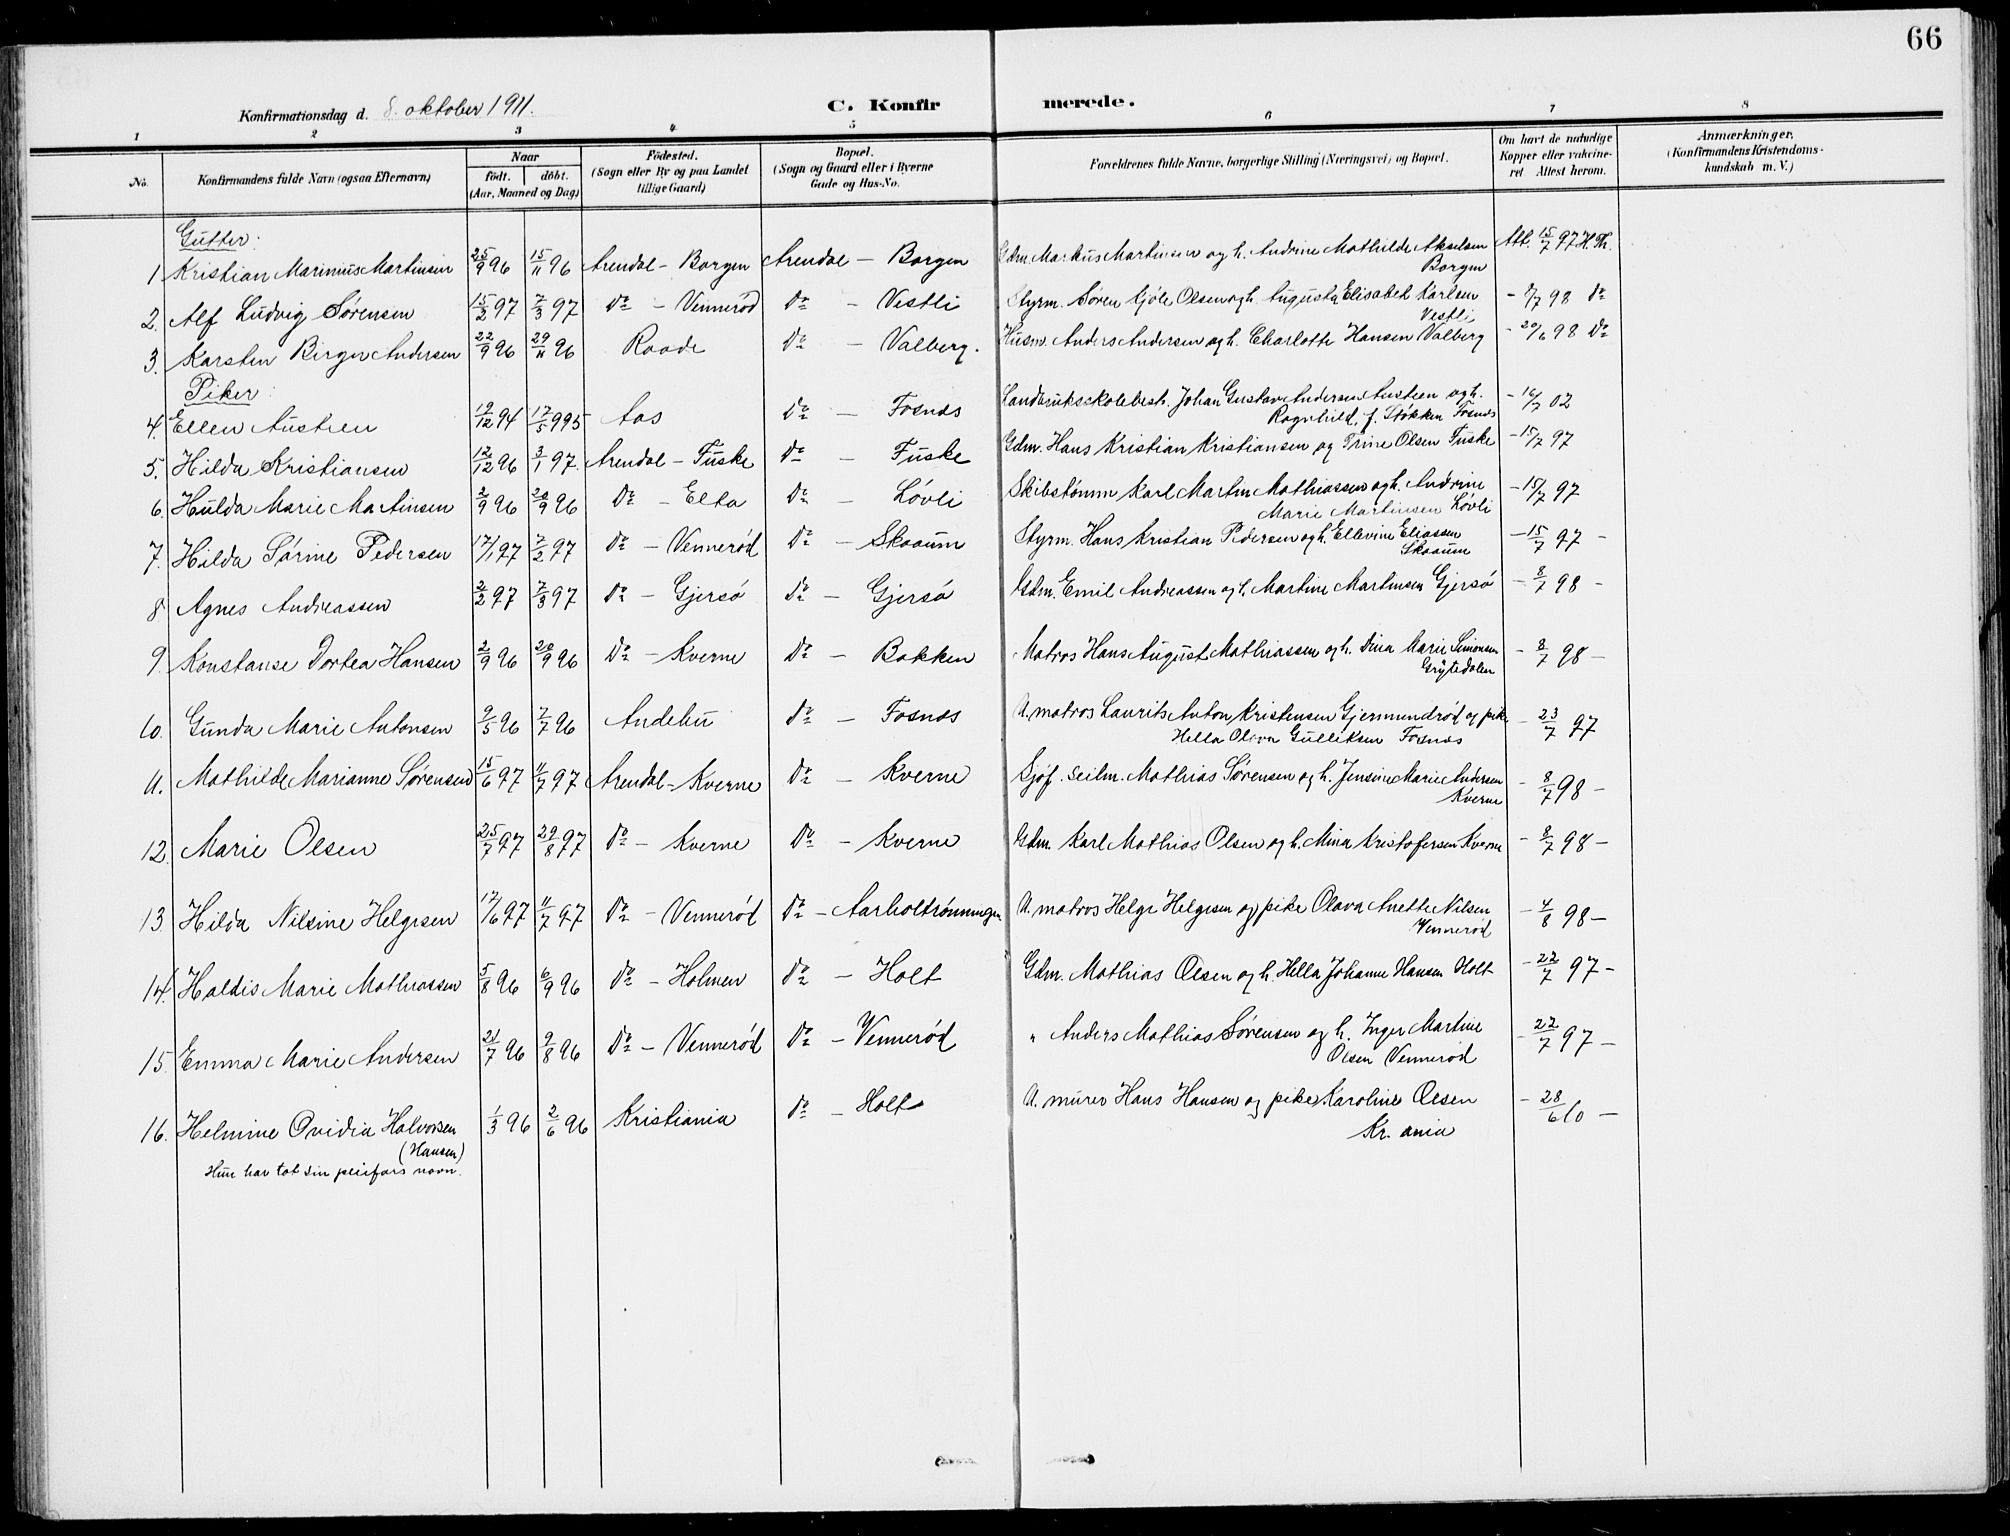 66
Konfirmationsdag d. 8. oktober 1911.
C. Konfirmerede.
1 2 3 4 5 6 7 8
No.
Konfirmandens fulde Navn (ogsaa Efternavn)
Naar
født. døbt.
(Aar, Maaned og Dag)
Fødested.
(Sogn eller By og paa Landet
tillige Gaard)
Bopæl.
(Sogn og Gaard eller i Byerne
Gade og Hus-No.
Forældrenes fulde Navne, borgerlige Stilling (Næringsvei) og Bopæl.
Om havt de naturlige
Kopper eller vakcine-
ret Attest herom.
Anmærkninger.
(Konfirmandens Kristendoms-
kundskab m. V.)
Gutter:
1 Kristian Marinius Martinsen 25/9 96 15/11 96 Arendal - Borgen Arendal - Borgen Gdm. Markus Martinsen og h. Andrine Mathilde Akselsen Att. 15/7 97 H. Th.
Borgen
2. Alf Ludvig Sørensen 15/2 97 7/3 97 Do - Vennerød Do - Vestli Styrm. Søren Gjøle Olsen og h. Augusta Elisabet Karlsen - 8/7 98 Do
Vestli
3. Karsten Birger Andersen 22/9 96 29/11 96 Raade Do - Valberg. Husm. Anders Andersen og h. Charlotte Hansen Valberg - 20/6 98 Do
Piker:
4. Ellen Austeen 19/12 94 17/5 995 Aas Do - Fosnæs Landbruksskolebest. Johan Gustav Andersen Austeen og h. - 16/7 02
Ragnhild, f. Støkken Fosnæs
5. Hilda Kristiansen 12/12 96 3/1 97. Arendal - Fuske Do - Fuske Gdm. Hans Kristian Kristiansen og Trine Olsen Fuske - 15/7 97
6. Hulda Marie Martinsen 2/9 96 20/9 96 Do - Elta Do - Løvli Skibstømm. Karl Martin Mathiassen og h. Andrine - 15/7 97
Marie Martinsen Løvli
7. Hilda Sørine Pedersen 17/1 97 7/2 97 Do - Vennerød Do - Skaaum Styrm. Hans Kristian Pedersen og h. Ellevine Eliassen - 15/7 97 -
Skaaum
8 Agnes Andreassen 2/2 97 7/3 97 Do - Gjersø Do - Gjersø Gdm. Emil Andreassen og h. Martine Martinsen Gjersø - 8/7 98 -
9. Konstanse Dortea Hansen 2/9 96 20/9 96 Do - Kverne Do - Bakken Matros Hans August Mathiassen og h. Dina Marie Simonsen - 8/7 98 -
Grytedalen
10. Gunda Marie Antonsen 9/5 96 7/7 96 Andebu Do - Fosnæs U. matros Laurits Anton Kristensen Gjermundrød og pike - 23/7 97
Hella Olava Gulliksen Fosnæs
11. Mathilde Marianne Sørensen 15/6 97 11/7 97 Arendal - Kverne Do - Kverne Sjøf. seilm. Mathias Sørensen og h. Jensine Marie Andersen - 8/7 98 -
Kverne
12. Marie Olsen 25/7 97 29/8 97 Do - Kverne Do - Kverne Gdm. Karl Mathias Olsen og h. Mina Kristofersen Kverne - 8/7 98 -
13. Hilda Nilsine Helgesen 17/6 97 11/7 97 Do - Vennerød Do - Aarholtrønningen U. matros Helge Helgesen og pike Olava Anette Nilsen - 4/8 98 -
Vennerød
14. Haldis Marie Mathiassen 5/8 96 6/9 96 Do - Holmen Do - Holt Gdm. Mathias Olsen og h. Hella Johanne Hansen Holt - 22/7 97 -
15. Emma Marie Andersen 21/7 96 9/8 96 Do - Vennerød Do - Vennerød " Anders Mathias Sørensen og h. Inger Martine - 22/7 97 -
Olsen Vennerød
16. Helmine Ovidia Halvorsen 1/3 96 2/6 96 Kristiania Do - Holt U. murer Hans Hansen og pike Karoline Olsen - 28/6 10 -
(Hansen) Kr.ania
Hun har tat sin pleifars navn.